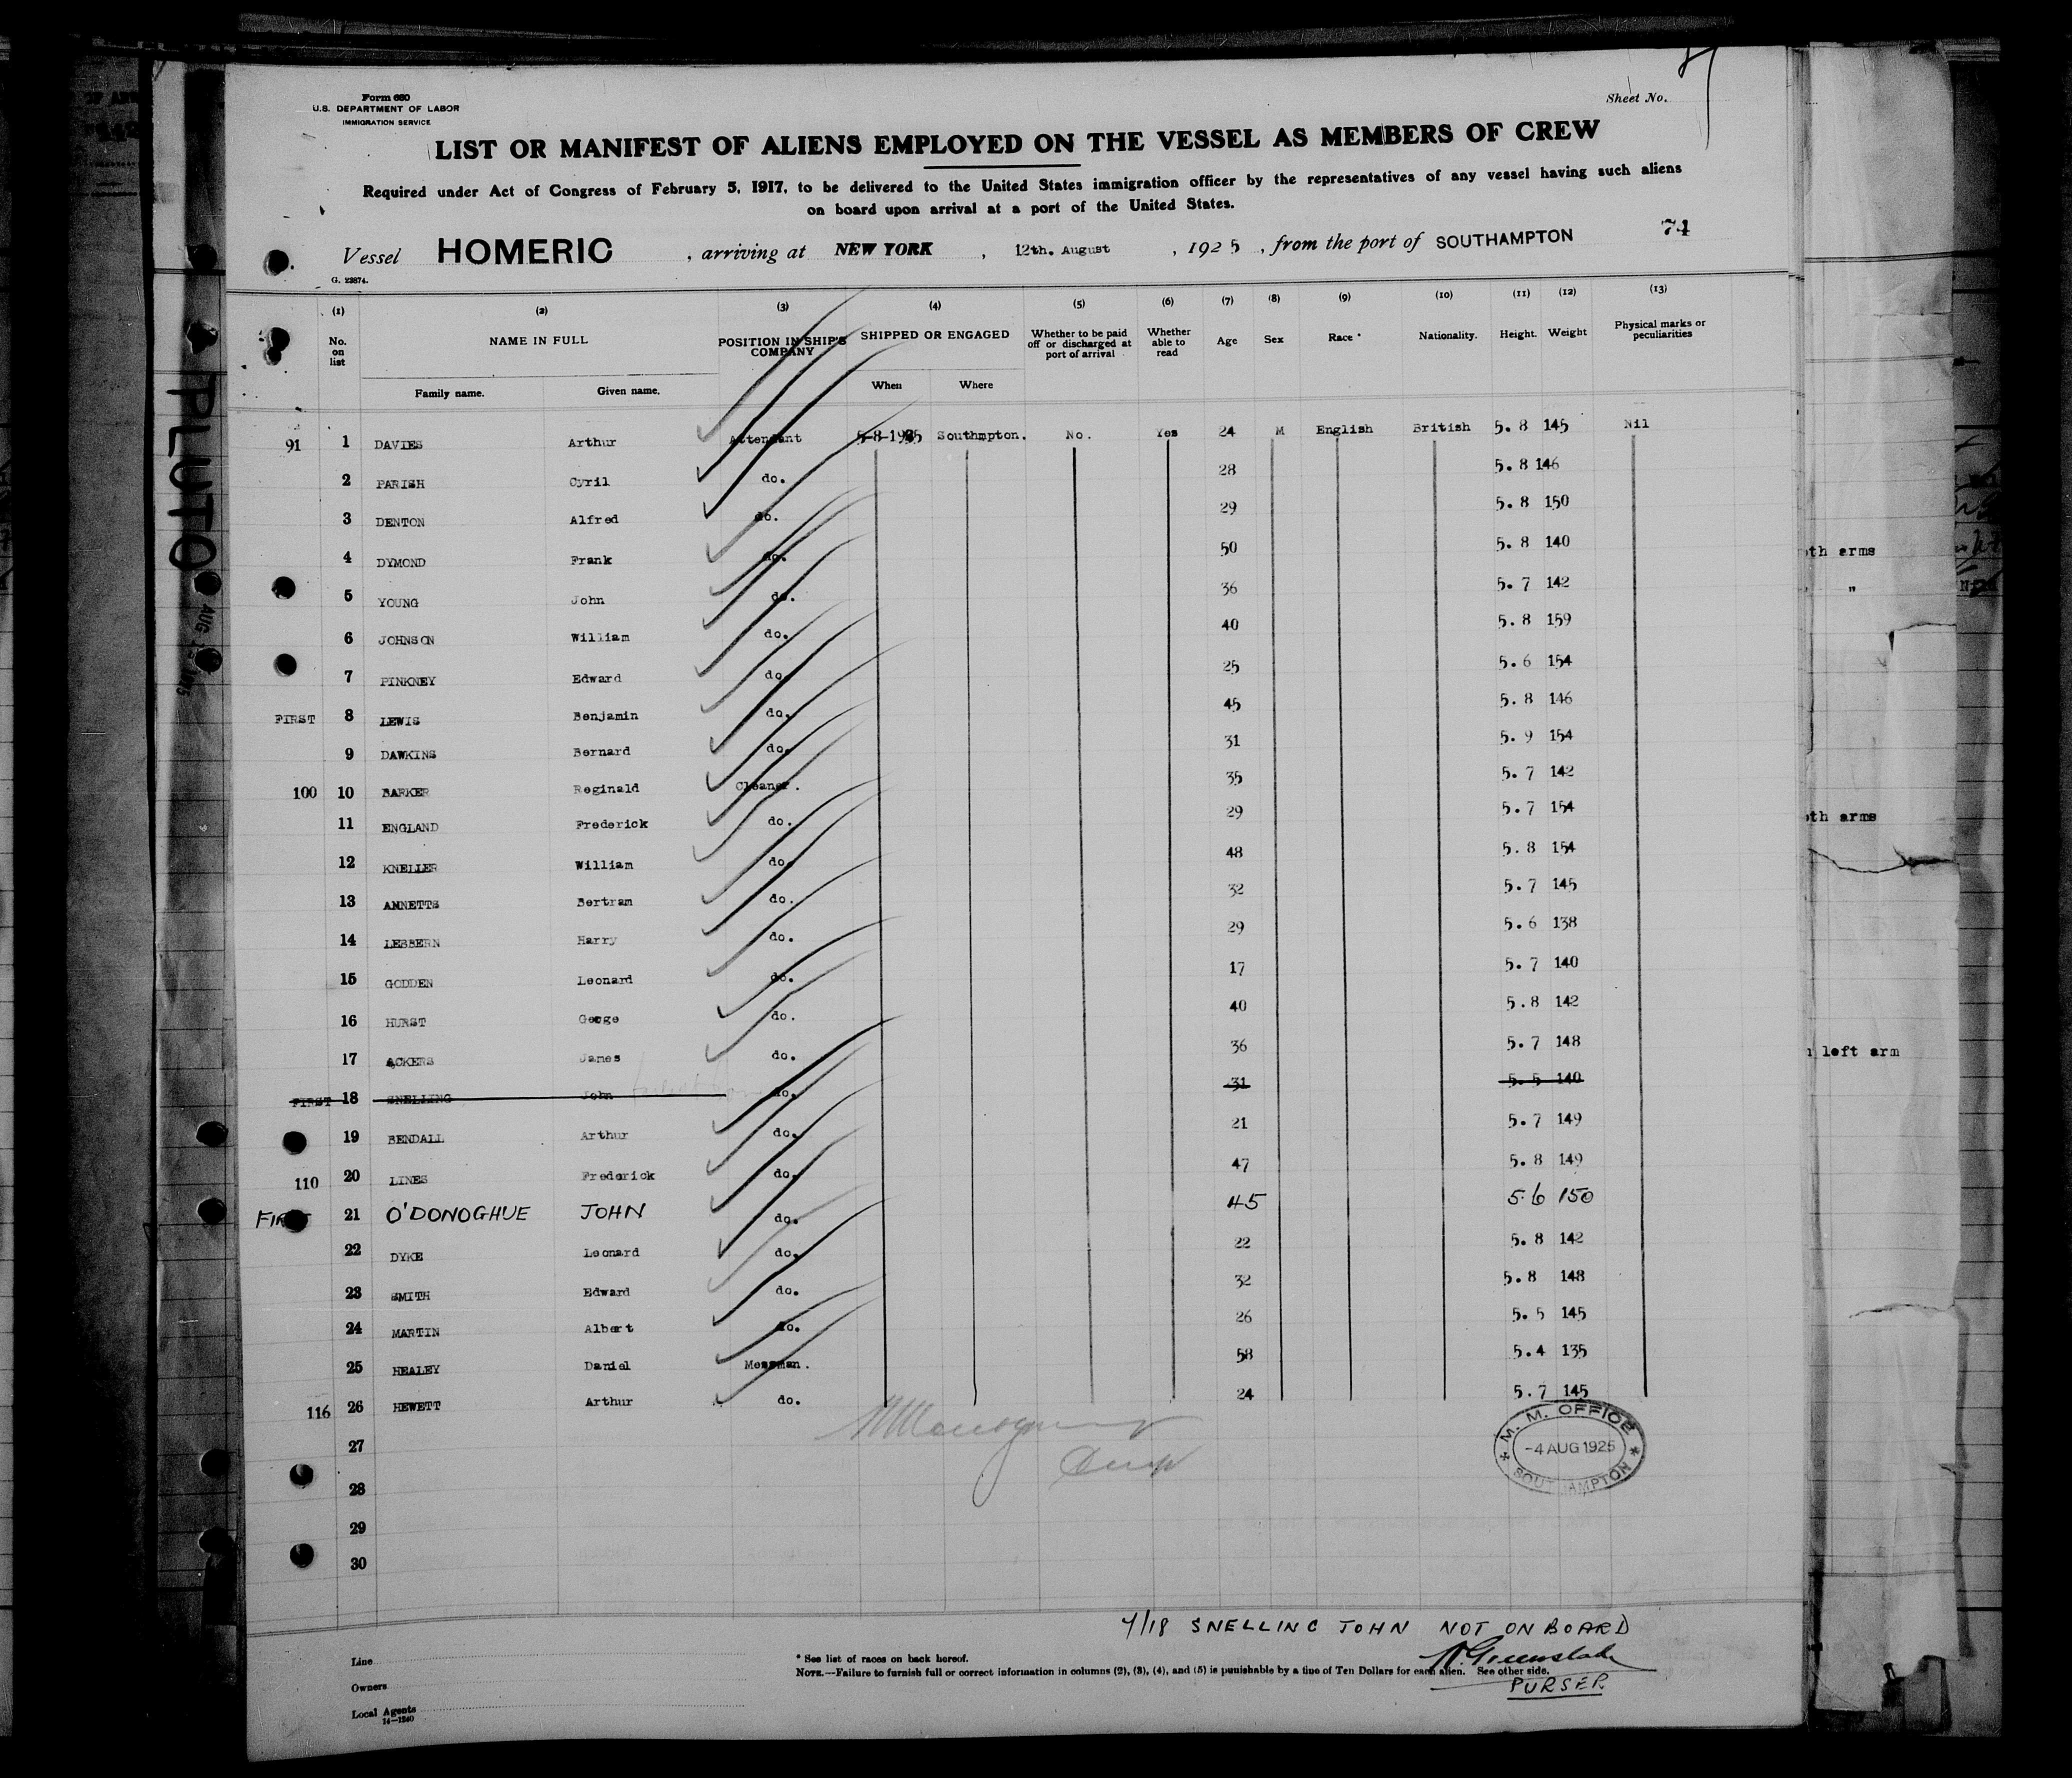 Form 680
U.S. DEPARTMENT OF LABOR
IMMIGRATION SERVICE
Sheet No.
LIST OR MANIFEST OF ALIENS EMPLOYED ON THE VESSEL AS MEMBERS OF CREW
Required under Act of Congress of February 5, 1917, to be delivered to the United States immigration officer by the representatives of any vessel having such aliens
on board upon arrival at a port of the United States.
74
Vessel HOMERIC , arriving at NEW YORK , 12th. August , 1925 , from the port of SOUTHAMPTON
G. 23874.
(1) (2) (3) (4) (5) (6) (7) (8) (9) (10) (11) (12) (13)
No. on list NAME IN FULL POSITION IN SHIP'S COMPANY SHIPPED OR ENGAGED Whether to be paid off or discharged at port of arrival Whether able to read Age Sex Race * Nationality. Height. Weight Physical marks or peculiarities
Family name. Given name. When Where
91 1 DAVIES Arthur Attendant 5-8-1925 Southmpton. No. Yes 24 M English British 5. 8 145 Nil
2 PARISH Cyril do. 28 5. 8 146
3 DENTON Alfred do. 29 5. 8 150
4 DYMOND Frank do. 50 5. 8 140
5 YOUNG John do. 36 5. 7 142
6 JOHNSON William do. 40 5. 8 159
7 PINKNEY Edward do. 25 5. 6 154
FIRST 8 LEWIS Benjamin do. 45 5. 8 146
9 DAWKINS Bernard do. 31 5. 9 154
100 10 BARKER Reginald Cleaner. 35 5. 7 142
11 ENGLAND Frederick do. 29 5. 7 154
12 KNELLER William do. 48 5. 8 154
13 ANNETTS Bertram do. 32 5. 7 145
14 LESBERN Harry do. 29 5. 6 138
15 GODDEN Leonard do. 17 5. 7 140
16 HURST Geoge do. 40 5. 8 142
17 ACKERS James do. 36 5. 7 148
FIRST 18 SNELLING John do. 31 5. 5 140
19 BENDALL Arthur do. 21 5. 7 149
110 20 LINES Frederick do. 47 5. 8 149
FIRST 21 O'DONOGHUE JOHN do. 45 5.6 150
22 DYKE Leonard do. 22 5. 8 142
23 SMITH Edward do. 32 5. 8 148
24 MARTIN Albert do. 26 5. 5 145
25 HEALEY Daniel Messman. 58 5. 4 135
116 26 HEWETT Arthur do. 24 5. 7 145
27
28
29
30
M. M. OFFICE
-4 AUG 1925
SOUTHAMPTON
SNELLING JOHN NOT ON BOARD
PURSER
Line
Owners
Local Agents
14—1240
* See list of races on back hereof.
NOTE.—Failure to furnish full or correct information in columns (2), (3), (4), and (5) is punishable by a fine of Ten Dollars for each alien. See other side.
PLUTO
AUG
arms
"
arms
left arm